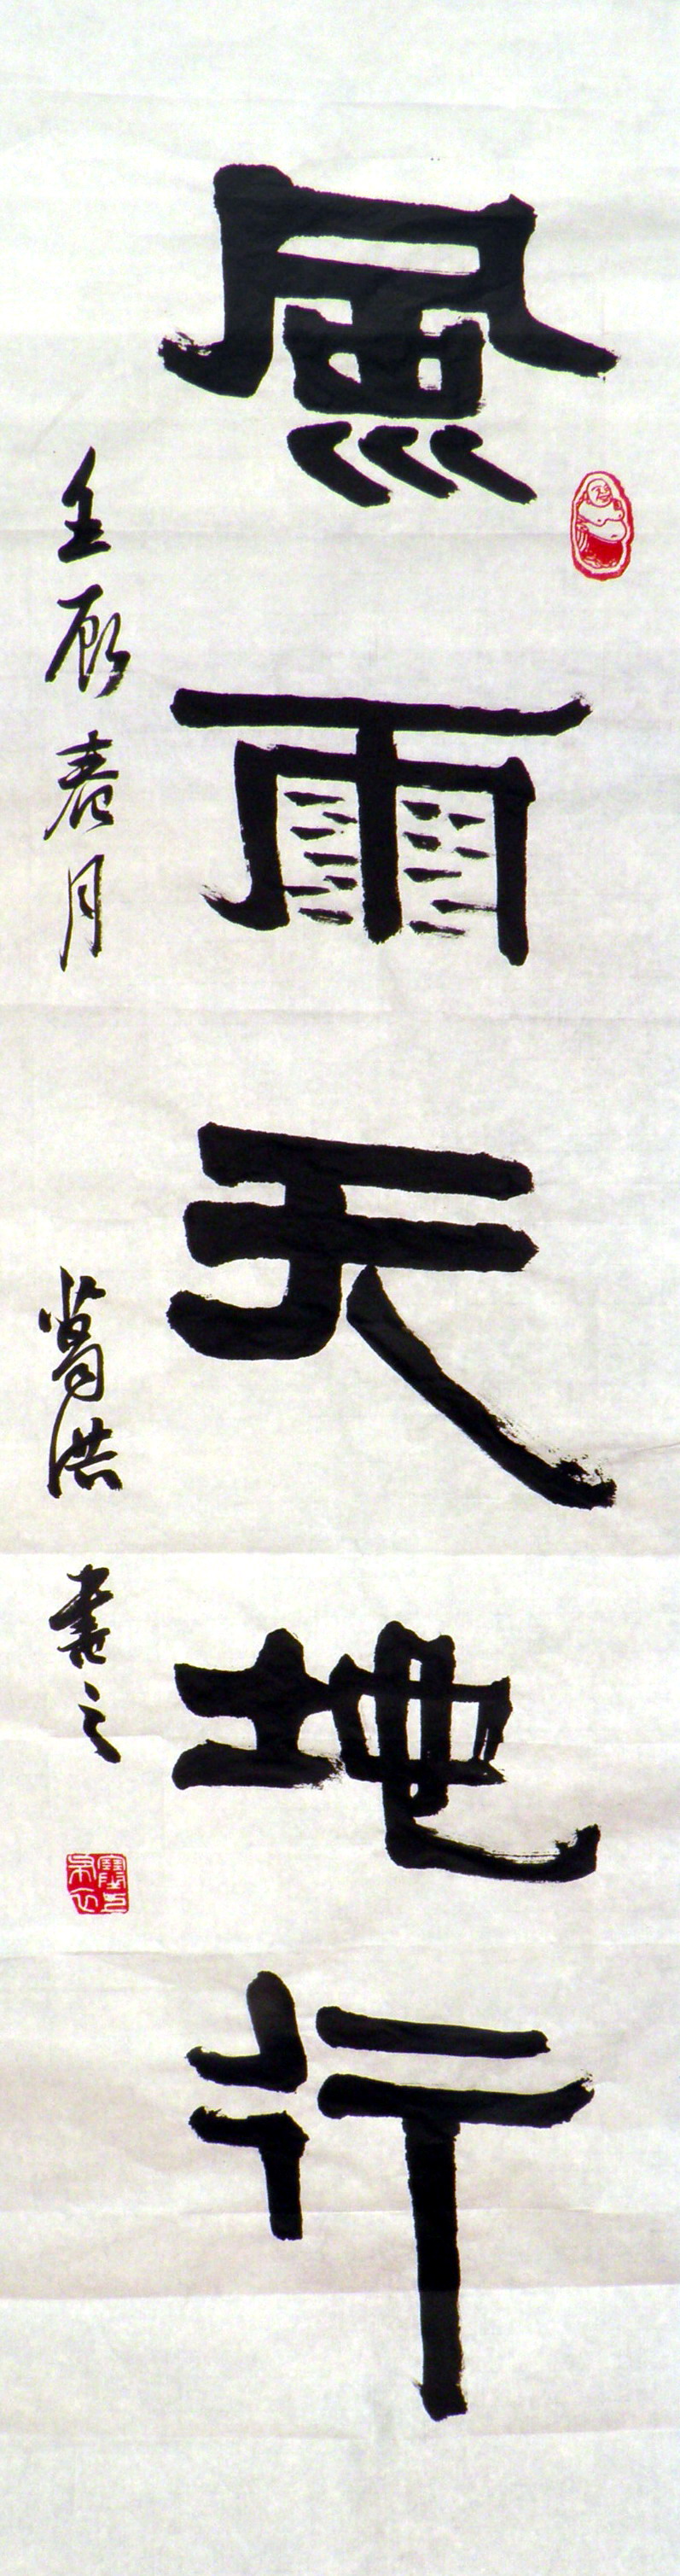 風雨天地行
壬辰春月
葛洪書之